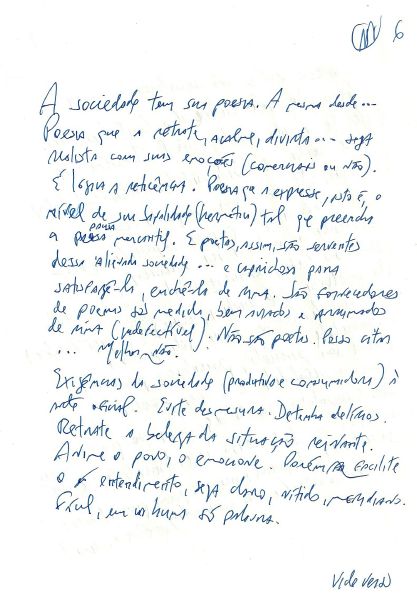 6
A sociedade tem sua poesia. A mesma desde...
Poesia que a retrate, acalme, divirta... seja
com suas emoções (comerciais ou não).
É lógica a reticência. Poesia que a expresse, isto é, o
nível de sua (hermética) tal que preencha
a pausa mercantil. E poetas, assim, são serventes
dessa alienada sociedade... e caprichosa para
satisfazê-la, enchê-la de rima. São fornecedores
de poema sob medida, bem rimados e arrumados
de rima (indefectível). Não são poetas. Posso citar
... Melhor não.
Exigências da sociedade (produtivo e consumidora) à
arte oficial. Evite desmesura. Detenha delírios.
Retrate a beleza da situação reinante.
Anime o povo, o emocione. Porém facilite
o entendimento, seja claro, nítido, meridiano.
Fácil, em uma só palavra.
Vide verso